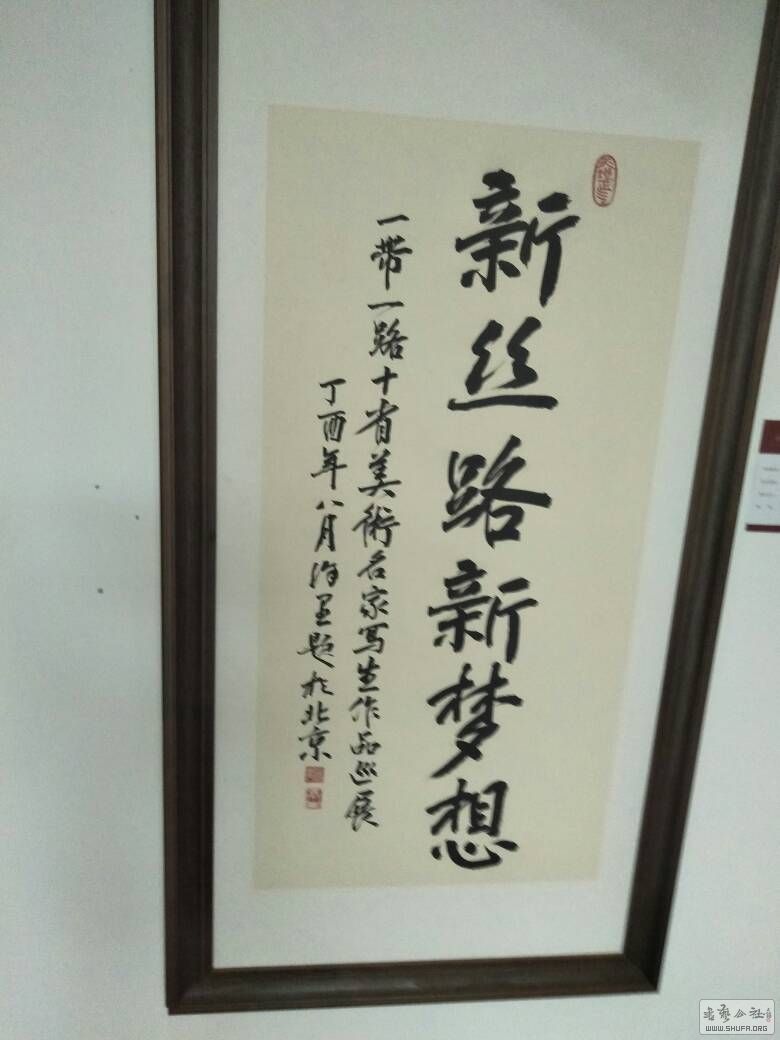 新丝路新梦想
一带一路十省美術名家写生作品巡展
丁酉年八月徐里题於北京
WWW.SHUFA.ORG